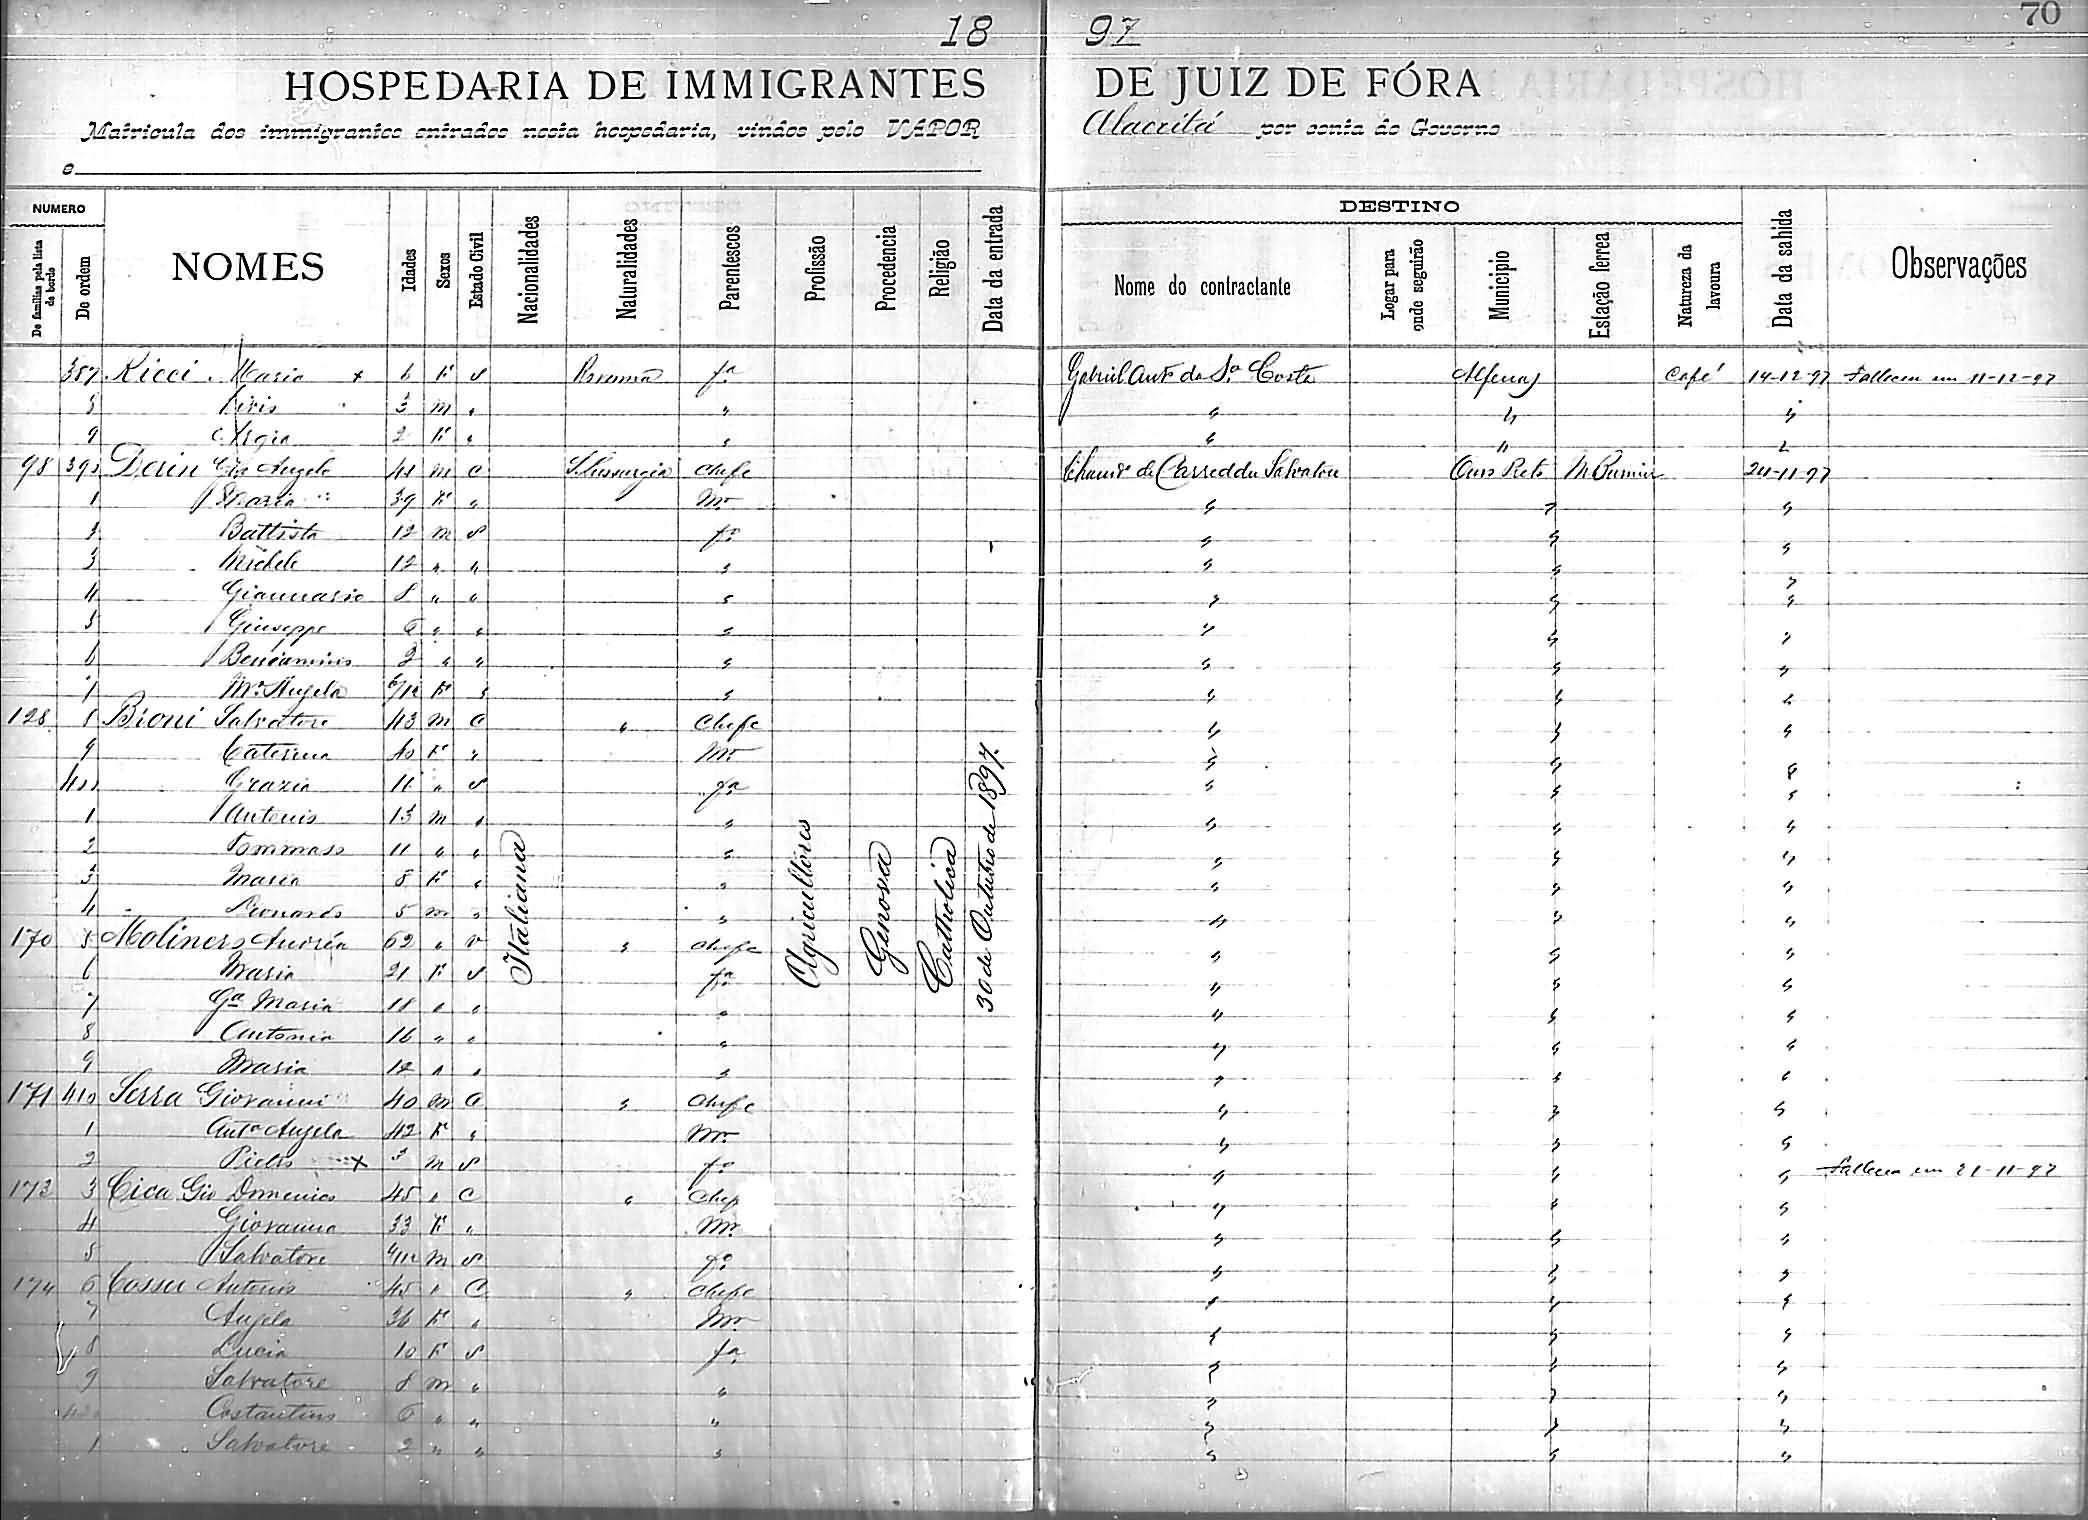 70
18 97
HOSPEDARIA DE IMMIGRANTES DE JUIZ DE FÓRA
Matricula dos immigrantes entrados nesta hospedaria, vindos pelo VAPOR Alacritá por conta do Governo
e
NUMERO
De familias pela lista de bordo
De ordem
NOMES
Idades
Sexos
Estado Civil
Nacionalidades
Naturalidades
Parentescos
Profissão
Procedencia
Religião
Data da entrada
DESTINO
Nome do contractante
Logar para onde seguirão
Municipio
Estação ferrea
Natureza da lavoura
Data da sahida
Observações
387 Ricci Maria x 6 F S fa Gabriel Antº da Sª Costa Alfenas Café 14-12-97 Falleceu em 11-12-97
8 3 m " " " " "
9 Argia 2 F " " " "
98 390 Gio Angelo 41 m C Chefe Carreddu Salvatore Ouro Preto M Burnier 24-11-97
1 Maria 39 F " Mr " " "
Battista 12 m S fo " " "
3 Michele 12 " " " " " "
4 8 " " " " " "
5 Giuseppe 6 " " " " " "
6 Beniamino 2 " " " " " "
7 Mª Angela 6/12 F " " " " "
128 8 Bioni Salvatore 43 m C " Chefe " " "
9 Caterina 40 F " Mr " " "
400 Grazia 11 " S fa " " "
1 Antonio 13 m " " " " "
2 Tommaso 11 " " " " " "
3 Maria 8 F " " " " "
4 Leonardo 5 m " " " " "
170 5 Molinero Andréa 62 " V " Chefe " " "
6 Maria 21 F S fa " " "
7 Gª Maria 18 " " " " " "
8 Antonia 16 " " " " " "
9 Maria 12 " " " " " "
171 410 Serra Giovanni 40 m C " Chefe " " "
1 Antª Angela 42 F " Mr " " "
2 Pietro x 3 m S fo " " " Falleceu em 21-11-97
173 3 Cica Gio Domenico 45 " C " Chefe " " "
4 Giovanna 33 F " Mr " " "
5 Salvatore m S fo " " "
174 6 Cossu Antonio 45 " C " Chefe " " "
7 Angela 36 F " Mr " " "
8 Lucia 10 F S fa " " "
9 Salvatore 8 m " " " " "
420 Costantino 6 " " " " " "
1 Salvatore 2 " " " " " "
Italiana
Agricultores
Genova
Catholica
30 de Outubro de 1897.